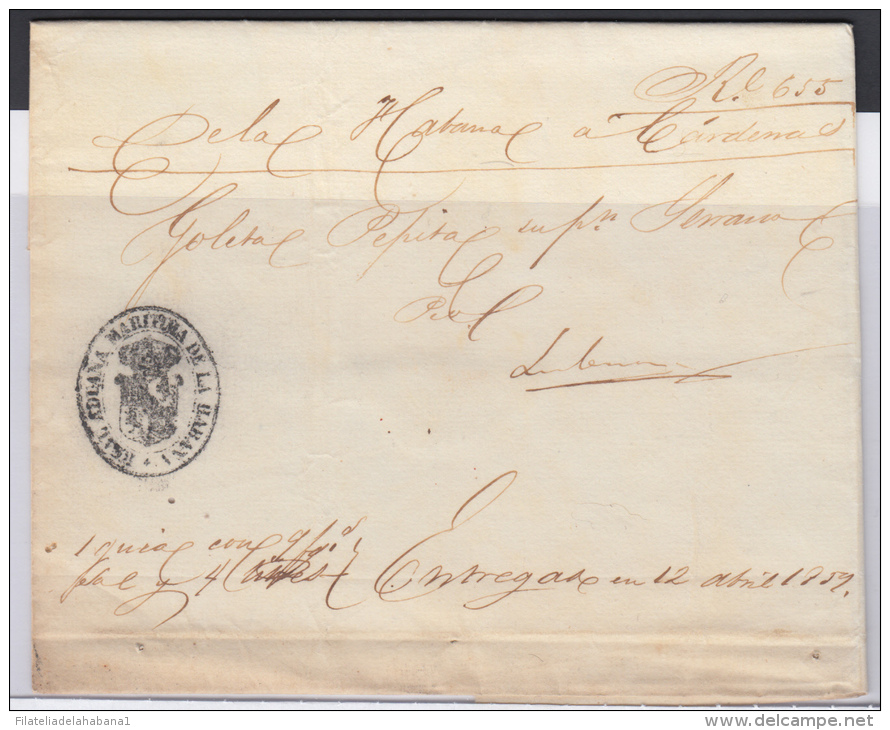 Rl. 655
De la Habana a Cárdenas
Goleta Pepita su pn Serrano
REAL ADUANA MARITIMA DE LA HABANA
1 guia con 9
y 4 Entregada en 12 abril 1859.
Filateliadelahabana1
delcampe.net